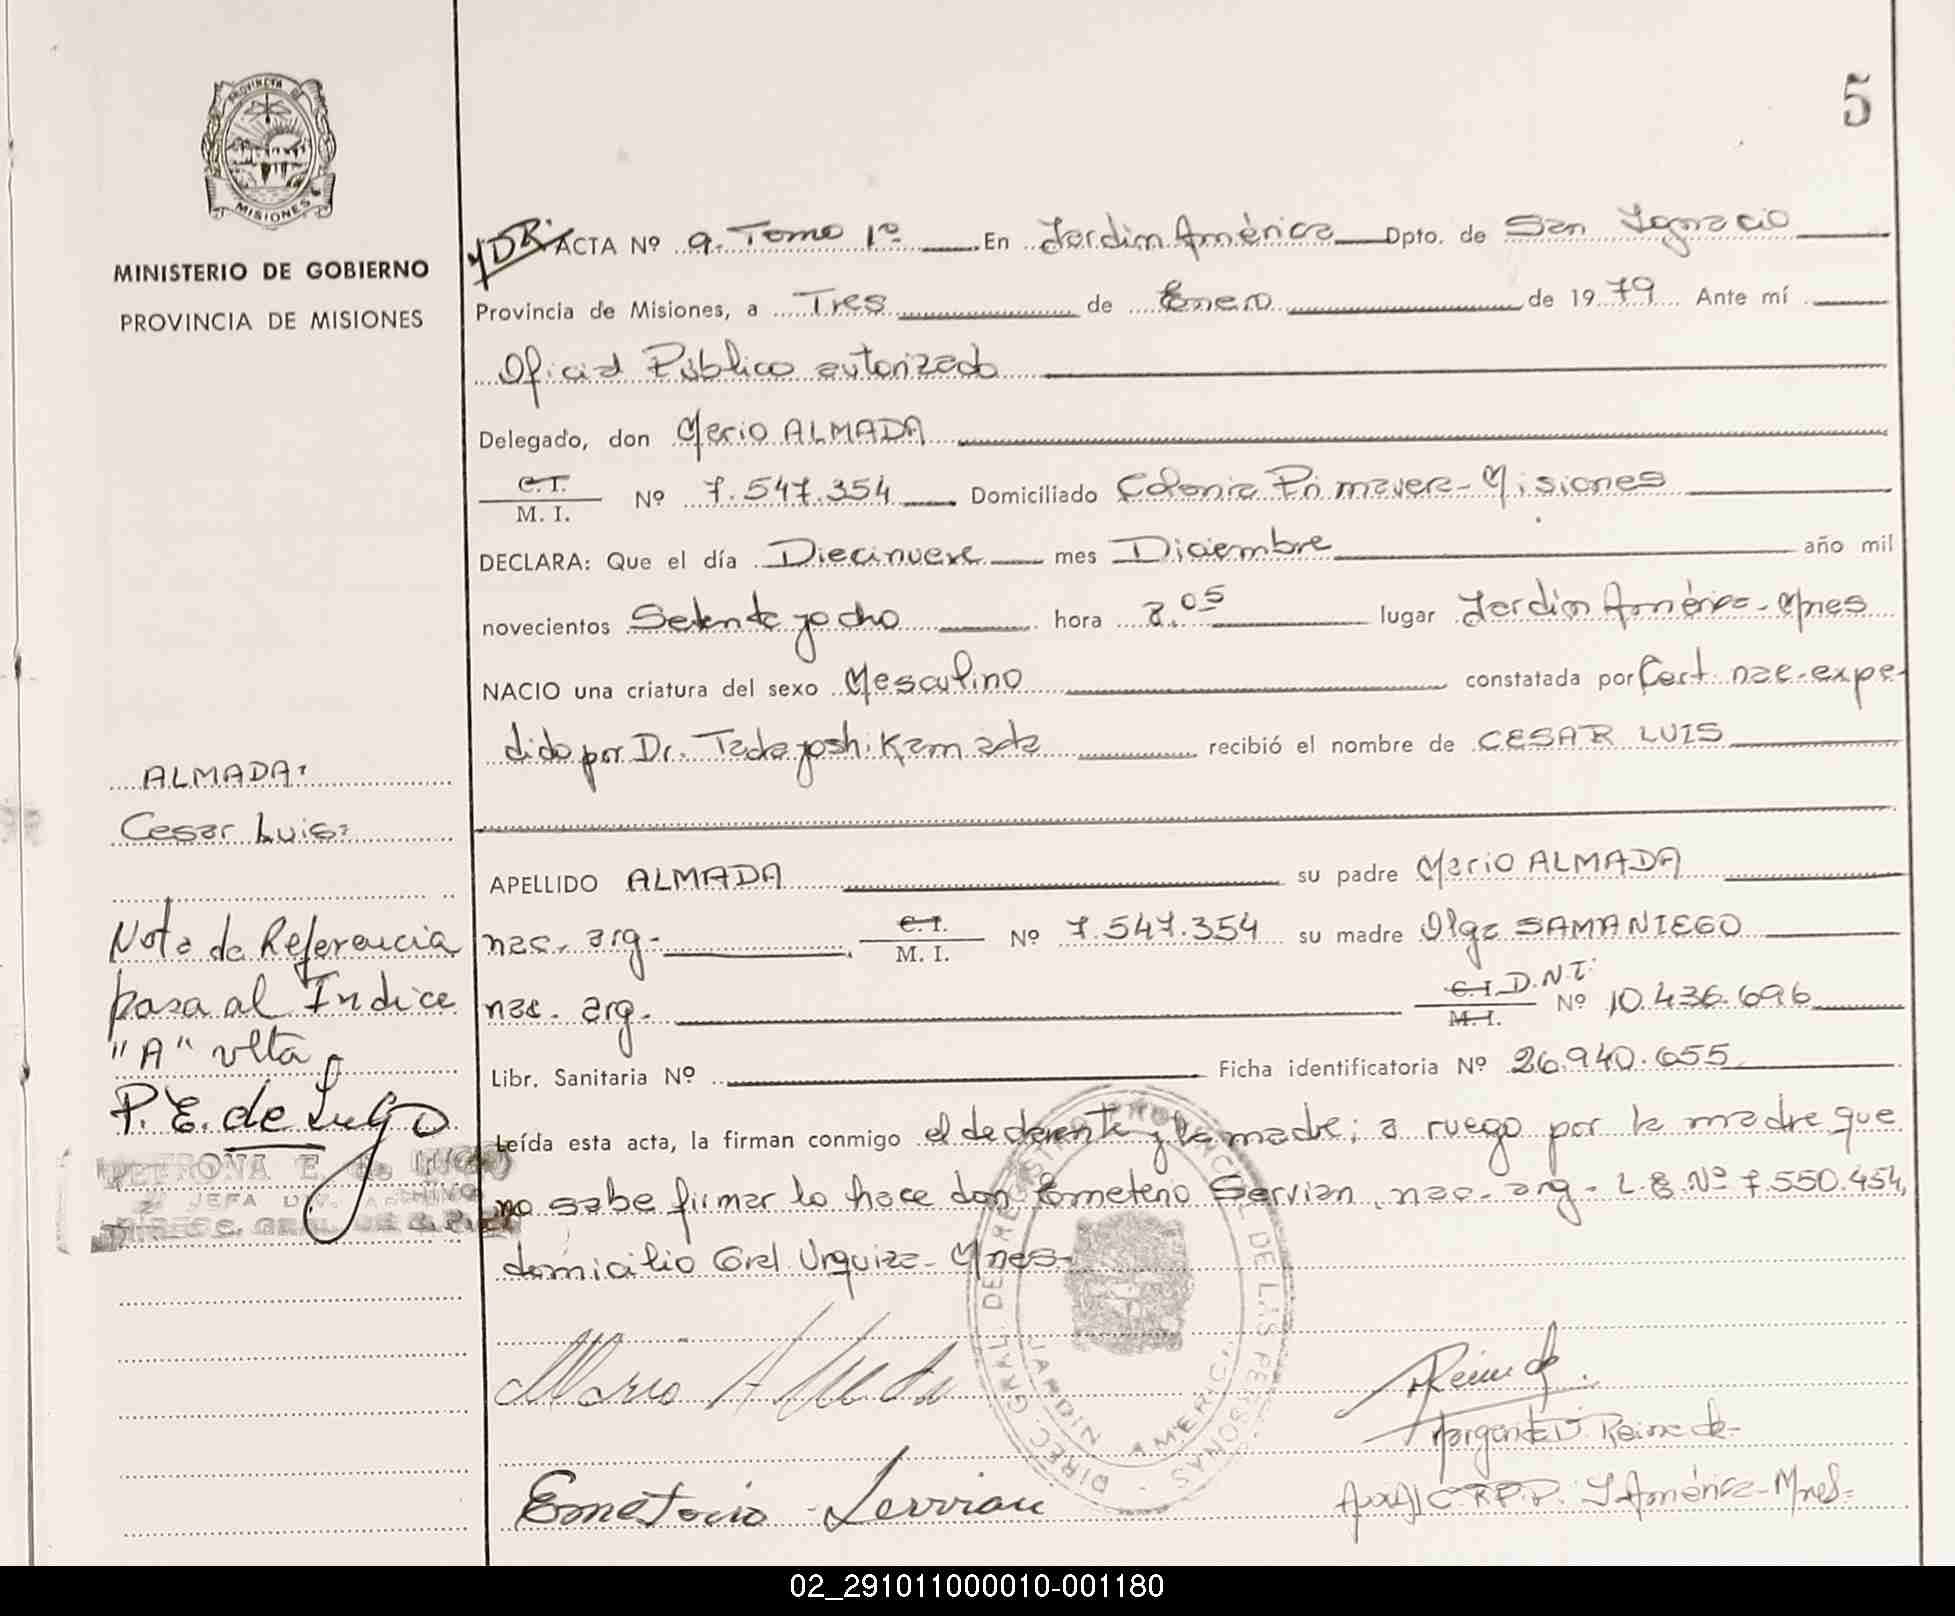 5
PROVINCIA DE
MISIONES
MINISTERIO DE GOBIERNO
PROVINCIA DE MISIONES
ACTA Nº 9. Tomo 1º En Jardín América Dpto. de San Ignacio
Provincia de Misiones, a Tres de Enero de 1979 Ante mí
Oficial Público autorizado
Delegado, don Mario ALMADA
C.I. M. I. Nº 7.547.354 Domiciliado Colonia Primavera - Misiones
DECLARA: Que el día Diecinueve mes Diciembre año mil
novecientos Setenta y ocho hora 05 lugar Jardín América - Mnes
NACIO una criatura del sexo Masculino constatada por Cert. nac. expe-
dido por Dr. Tadayoshi Kamada recibió el nombre de CESAR LUIS
ALMADA:
Cesar Luis:
APELLIDO ALMADA su padre Mario ALMADA
nac. arg. C.I. M. I. Nº 7.547.354 su madre Olga SAMANIEGO
nac. arg. C.I. D.N.I. M.I. Nº 10.436.696
Libr. Sanitaria Nº Ficha identificatoria Nº 26.940.655
Leída esta acta, la firman conmigo el declarante y la madre; a ruego por la madre que
no sabe firmar lo hace don Emeterio Servian, nac. arg. L.E. Nº 7.550.454,
domicilio Gral Urquiza - Mnes-
Nota de Referencia
pasa al Indice
"A" vlta
P. E. de Lugo
PETRONA E. de LUGO
JEFA DIV. ARCHIVO
DIREC. GRAL DE
DIREC. GRAL. DE REGISTRO PROVINCIAL DE LAS PERSONAS
JARDIN AMERICA
Mario Almada
Reina de
Margarita Reina de
C.R.P.P. J. América - Mnes
Emeterio Servian
02_291011000010-001180